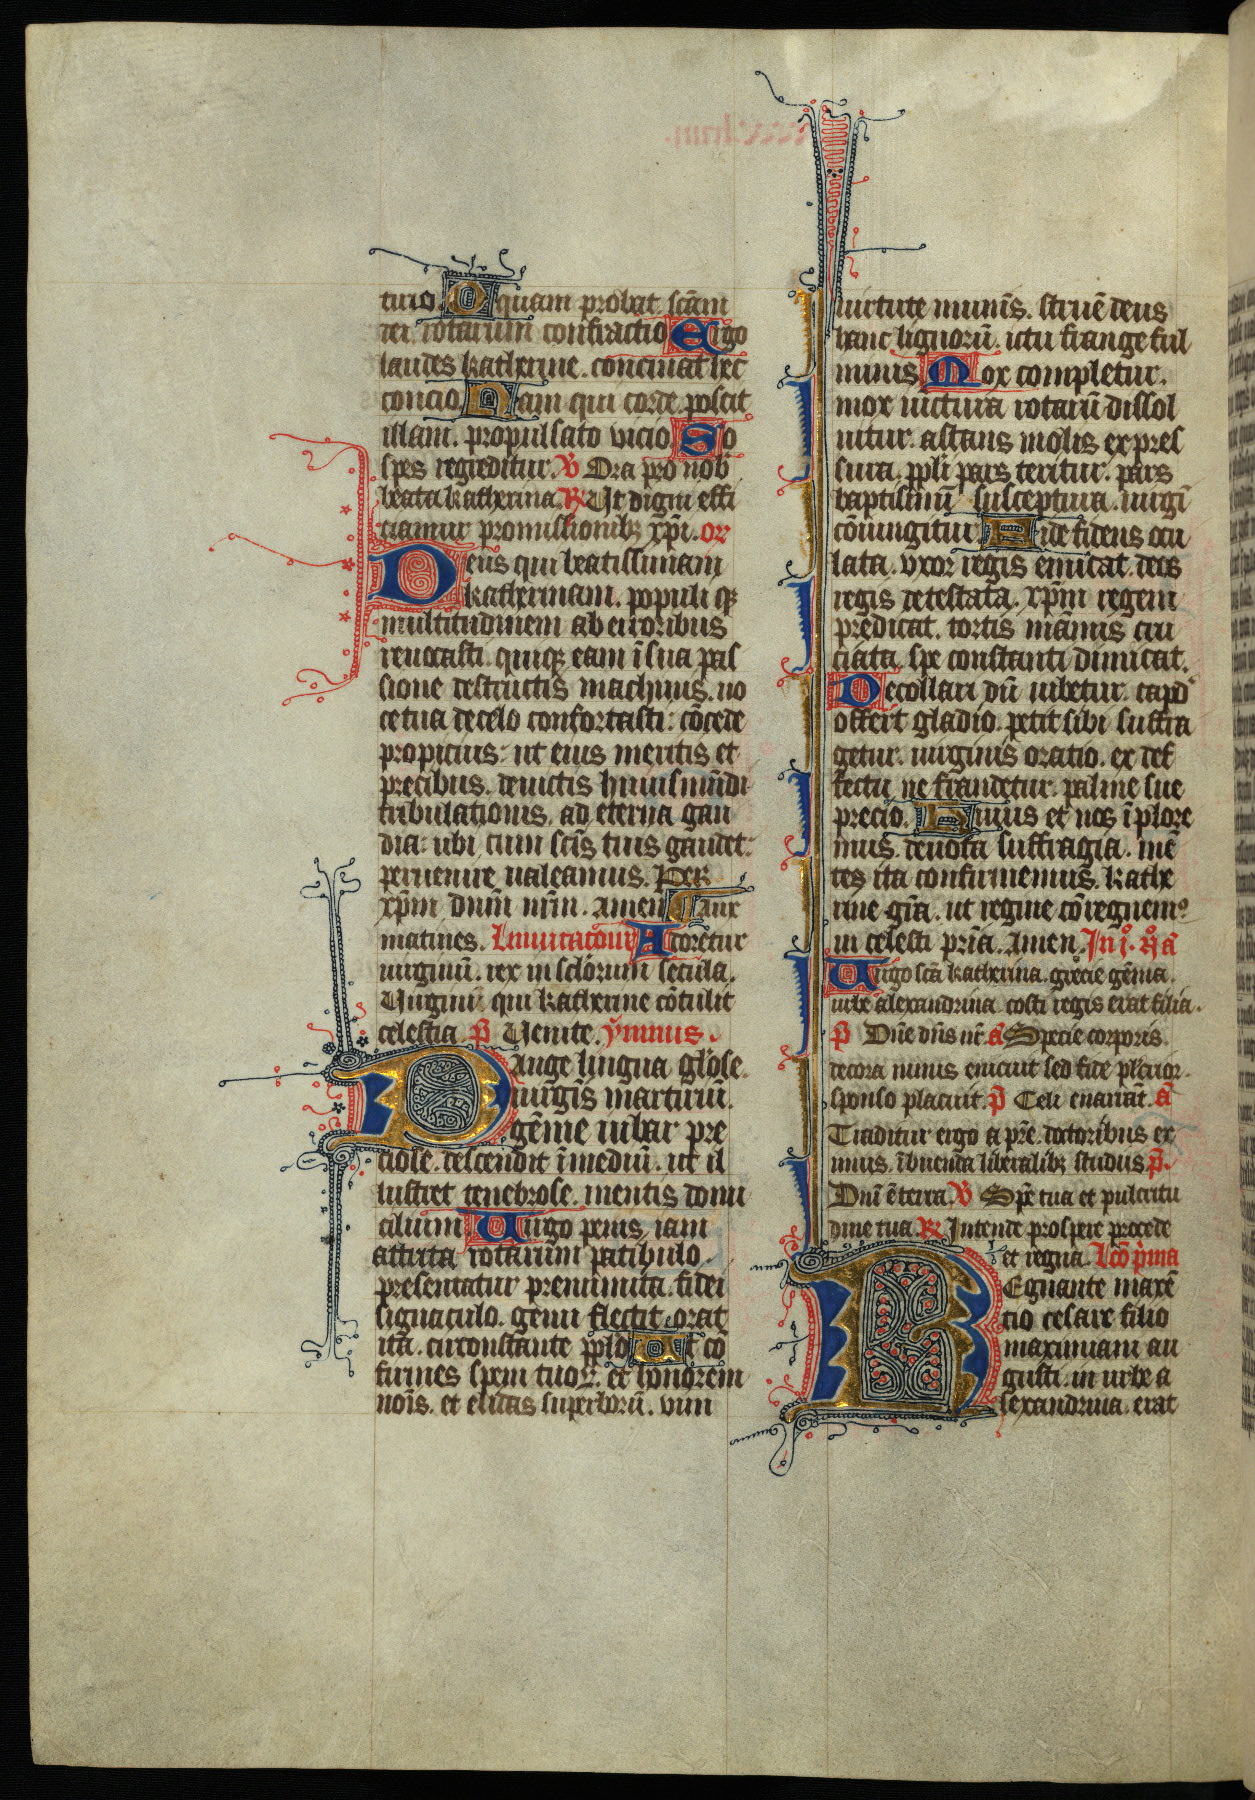 turio. O quam probat scām
rei rotarum confractio Ergo
laudes katherine. concinat hec
concio. Nam qui corde poscit
illam. propulsato vicio. So
spes regreditur. V Ora pro nob
beata katherina. R Ut digni effi
ciamur promissionibꝫ xp̄i. or
Deus qui beatissimam
katherinam. populi qꝫ
multitudinem ab erroribus
reuocasti. quiqꝫ eam ī sua pas
sione destructis machinis. uo
ce tua de celo confortasti: cōcede
propicius: ut eius meritis et
precibus. deuictis huius mūdi
tribulationis. ad eterna gau
dia: ubi cum scīs tuis gaudet:
peruenire ualeamus. Per
xp̄m dn̄m nr̄m. amen. Aux
matines. Inuitatoūr Adoretur
uirginū. rex in sclōrum secula.
Uirginū qui katherine cōtulit
celestia. p̄ Uenite. ȳmnus.
Pange lingua glōse.
uirgīs martirū.
gēme iubar pre
ciose. descendit ī mediū. ut il
lustret tenebrose. mentis domi
cilium. Uirgo prius, iam
attrita rotarum patibulo.
presentatur premunita. fidei
signaculo. genu flectit orat
ita. circonstante pplo. Ut co
firmes spem tuoꝝ. et honorem
noīs. et elidas superborū. vim
uirtute numīs. struē deus
hanc lignorū. ictu frange ful
minis Mox completur.
mox uictura rotarū dissol
uitur. astans molis expres
sura. ppli pars teritur. pars
baptismū susceptura. uirgī
cōiungitur. Fide fidens ocu
lata. vxor regis emicat. deos
regis detestata. xp̄m regem
predicat. tortis māmis cru
ciata. spe constanti dimicat.
Decollari dū iubetur. capd'
offert gladio. petit sibi suffra
getur. uirginis oratio. ex def
fectu ne fraudetur. palme sue
precio. Huius et nos īplore
mus. deuota suffragia. mē
tes ita confirmemus. kathe
rine grā. ut regine cōregnemꝰ
in celesti pr̄ia. Amen. In j. n̄. ā
Uirgo scā katherina. grecie gēma.
urbe alexandrina costi regis erat filia.
p̄ Dn̄e dn̄s nr̄. ā Specie corporis
decora nimis enicuit sed fide placuor.
sponso placuit. p̄ Celi enarrāt. ā
Traditur ergo a pr̄e. doctoribus ex
imius. ībuenda liberalibꝫ studiis p̄.
Dn̄i ē terra. V Spē tua et pulcritu
dine tua. R Intende prospere procede
et regna. Lcō prima
Regnante maxē
tio cesare filio
maximiani au
gusti. in urbe a
lexandrina. erat